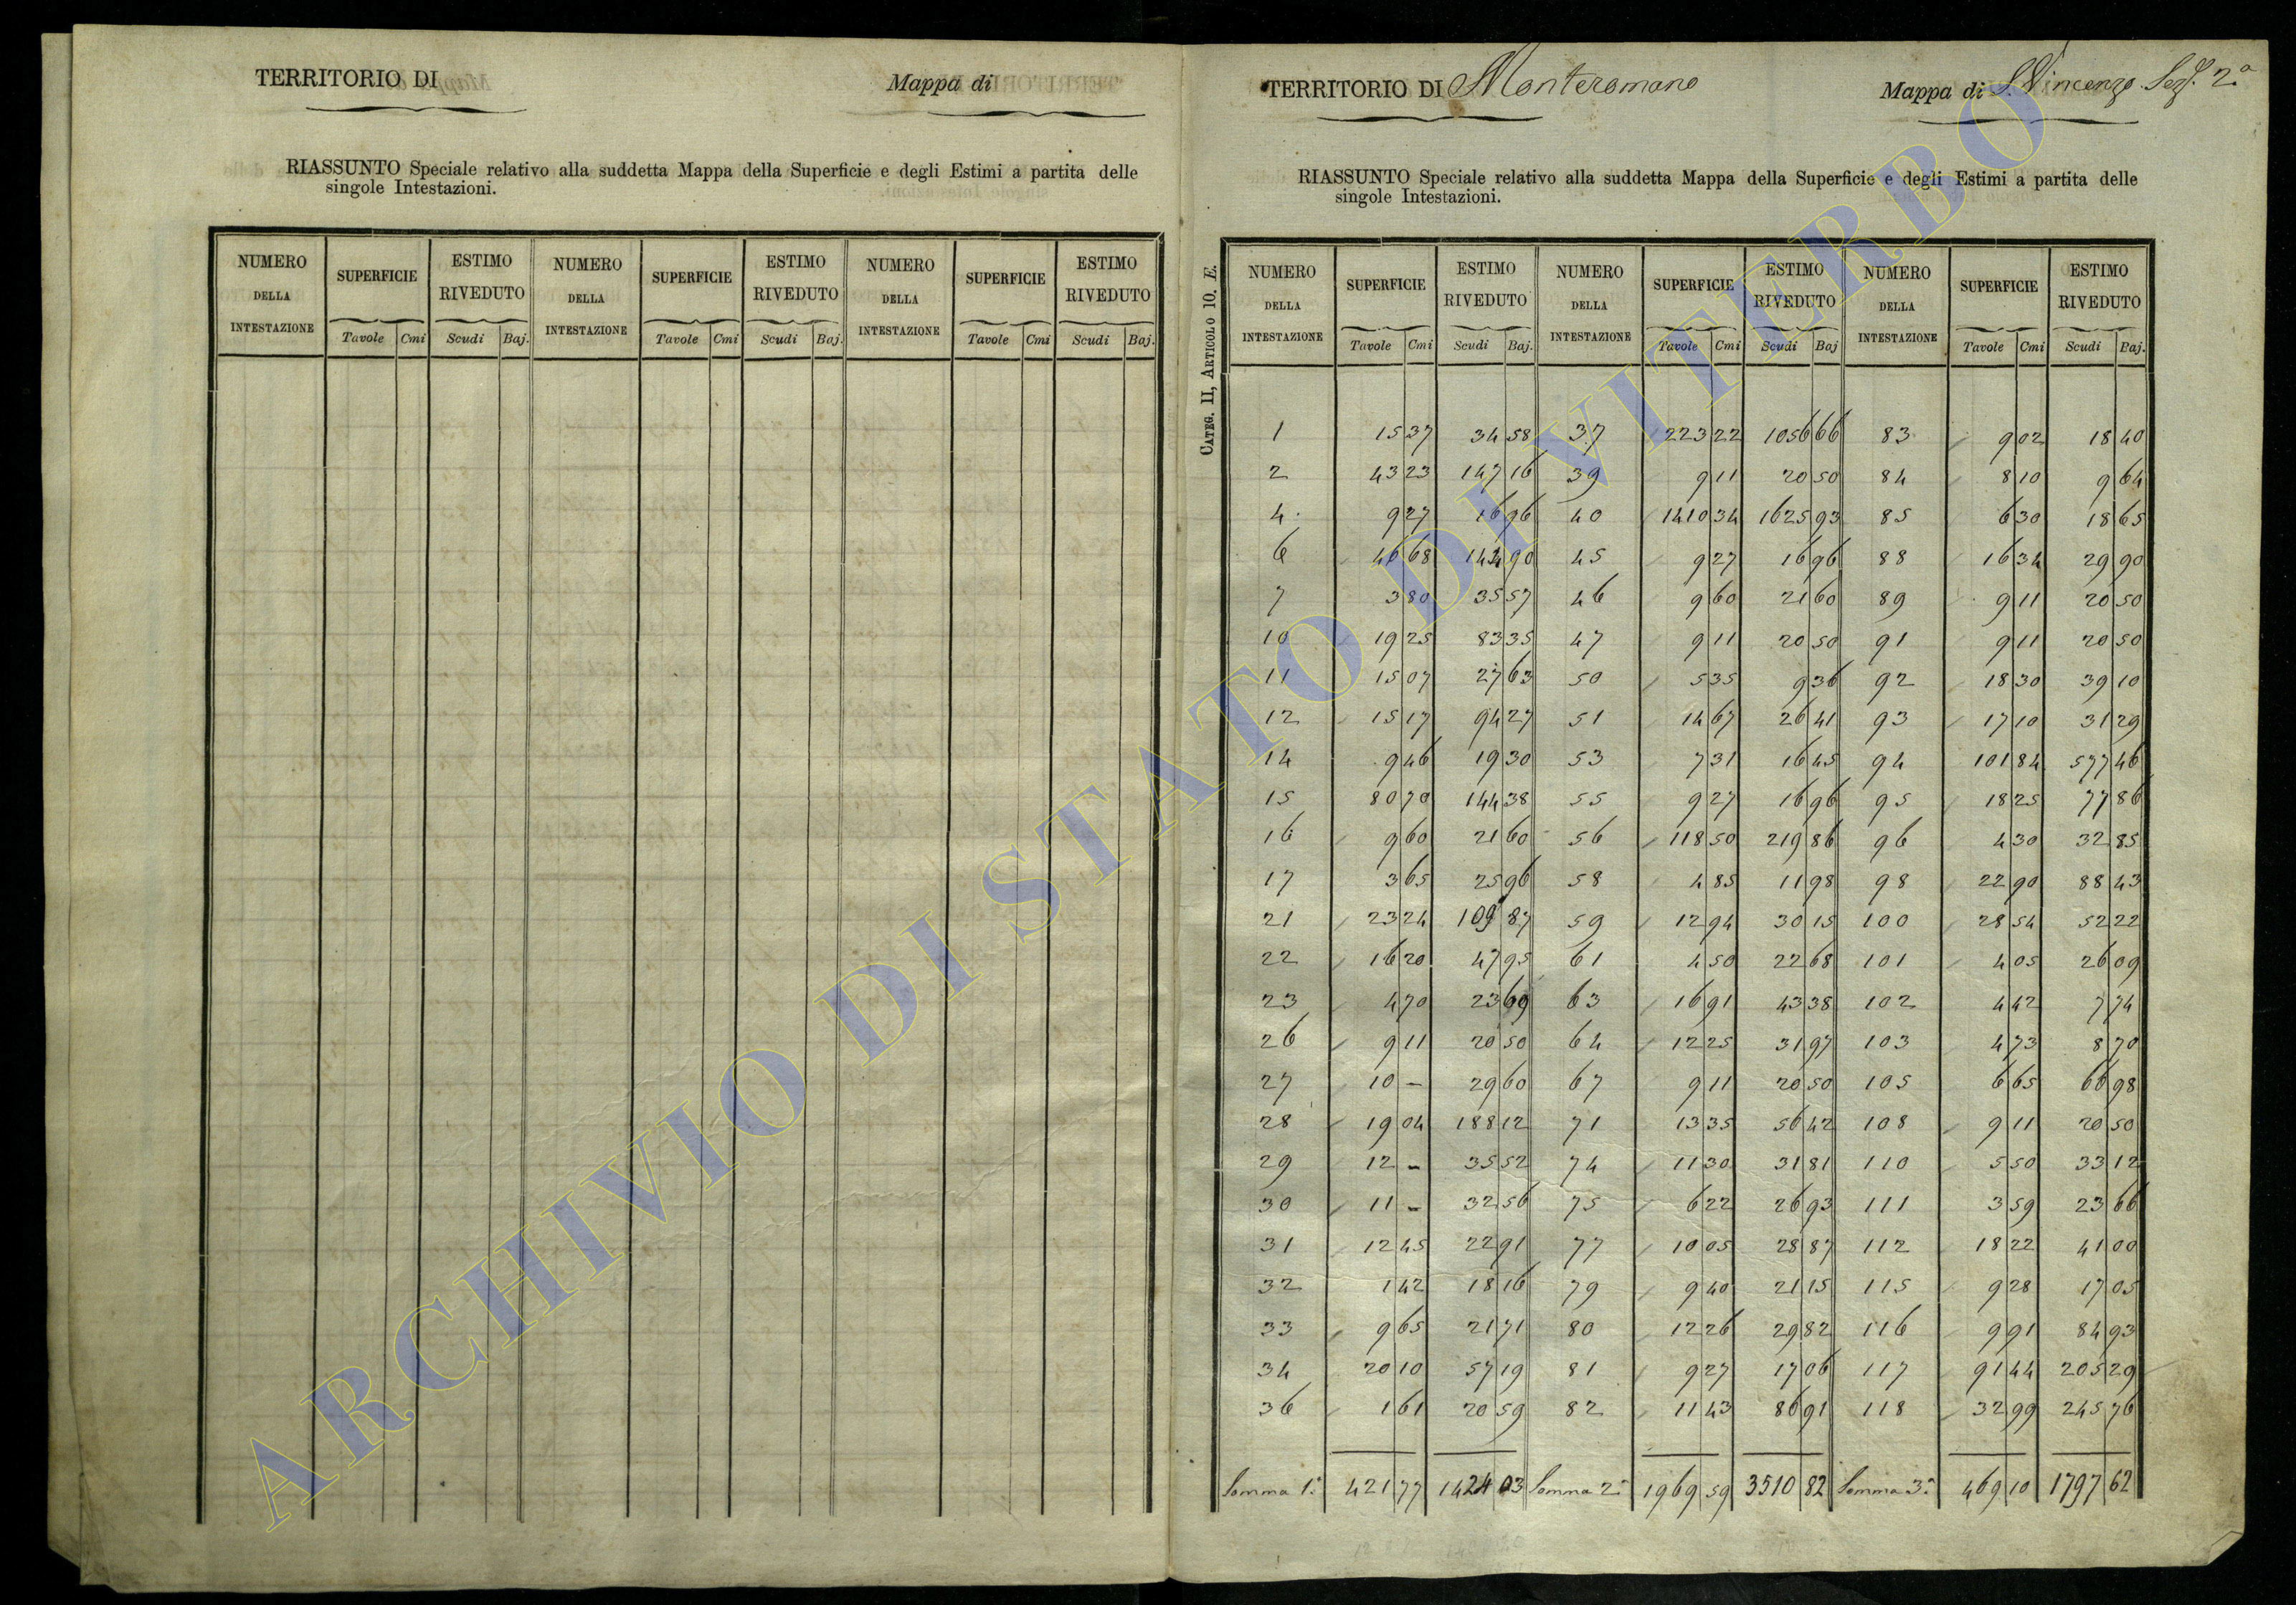 TERRITORIO DI
Mappa di
RIASSUNTO Speciale relativo alla suddetta Mappa della Superficie e degli Estimi a partita delle
singole Intestazioni.
NUMERO DELLA INTESTAZIONE SUPERFICIE ESTIMO RIVEDUTO NUMERO DELLA INTESTAZIONE SUPERFICIE ESTIMO RIVEDUTO NUMERO DELLA INTESTAZIONE SUPERFICIE ESTIMO RIVEDUTO
Tavole Cmi Scudi Baj. Tavole Cmi Scudi Baj. Tavole Cmi Scudi Baj.
TERRITORIO DI Monteromano
Mappa di S. Vincenzo Sez.e 2a
RIASSUNTO Speciale relativo alla suddetta Mappa della Superficie e degli Estimi a partita delle
singole Intestazioni.
CATEG. II, ARTICOLO 10, E.
NUMERO DELLA INTESTAZIONE SUPERFICIE ESTIMO RIVEDUTO NUMERO DELLA INTESTAZIONE SUPERFICIE ESTIMO RIVEDUTO NUMERO DELLA INTESTAZIONE SUPERFICIE ESTIMO RIVEDUTO
Tavole Cmi Scudi Baj. Tavole Cmi Scudi Baj Tavole Cmi Scudi Baj.
1 15 37 34 58 37 223 22 1056 66 83 9 02 18 40
2 43 23 147 16 39 9 11 20 50 84 8 10 9 64
4 9 27 16 96 40 1410 34 1625 93 85 6 30 18 65
6 40 68 144 90 45 9 27 16 96 88 16 34 29 90
7 3 80 35 57 46 9 60 21 60 89 9 11 20 50
10 19 25 83 35 47 9 11 20 50 91 9 11 20 50
11 15 07 27 63 50 5 35 9 36 92 18 30 39 10
12 15 17 94 27 51 14 67 26 41 93 17 10 31 29
14 9 46 19 30 53 7 31 16 45 94 101 84 577 46
15 80 70 144 38 55 9 27 16 96 95 18 25 77 86
16 9 60 21 60 56 118 50 219 86 96 4 30 32 85
17 3 65 25 96 58 4 85 11 98 98 22 90 88 43
21 23 24 109 87 59 12 94 30 15 100 28 54 52 22
22 16 20 47 95 61 4 50 22 68 101 4 05 26 09
23 4 70 23 69 63 16 91 43 38 102 4 42 7 74
26 9 11 20 50 64 12 25 31 97 103 4 73 8 70
27 10 – 29 60 67 9 11 20 50 105 6 65 66 98
28 19 04 188 12 71 13 35 56 42 108 9 11 20 50
29 12 – 35 52 74 11 30 31 81 110 5 50 33 12
30 11 – 32 56 75 6 22 26 93 111 3 59 23 66
31 12 45 22 91 77 10 05 28 87 112 18 22 41 00
32 1 42 18 16 79 9 40 21 15 115 9 28 17 05
33 9 65 21 71 80 12 26 29 82 116 9 91 84 93
34 20 10 57 19 81 9 27 17 06 117 91 44 205 29
36 1 61 20 59 82 11 43 86 91 118 32 99 245 76
Somma 1a 421 77 1424 03 Somma 2a 1969 59 3510 82 Somma 3a 469 10 1797 62
ARCHIVIO DI STATO DI VITERBO